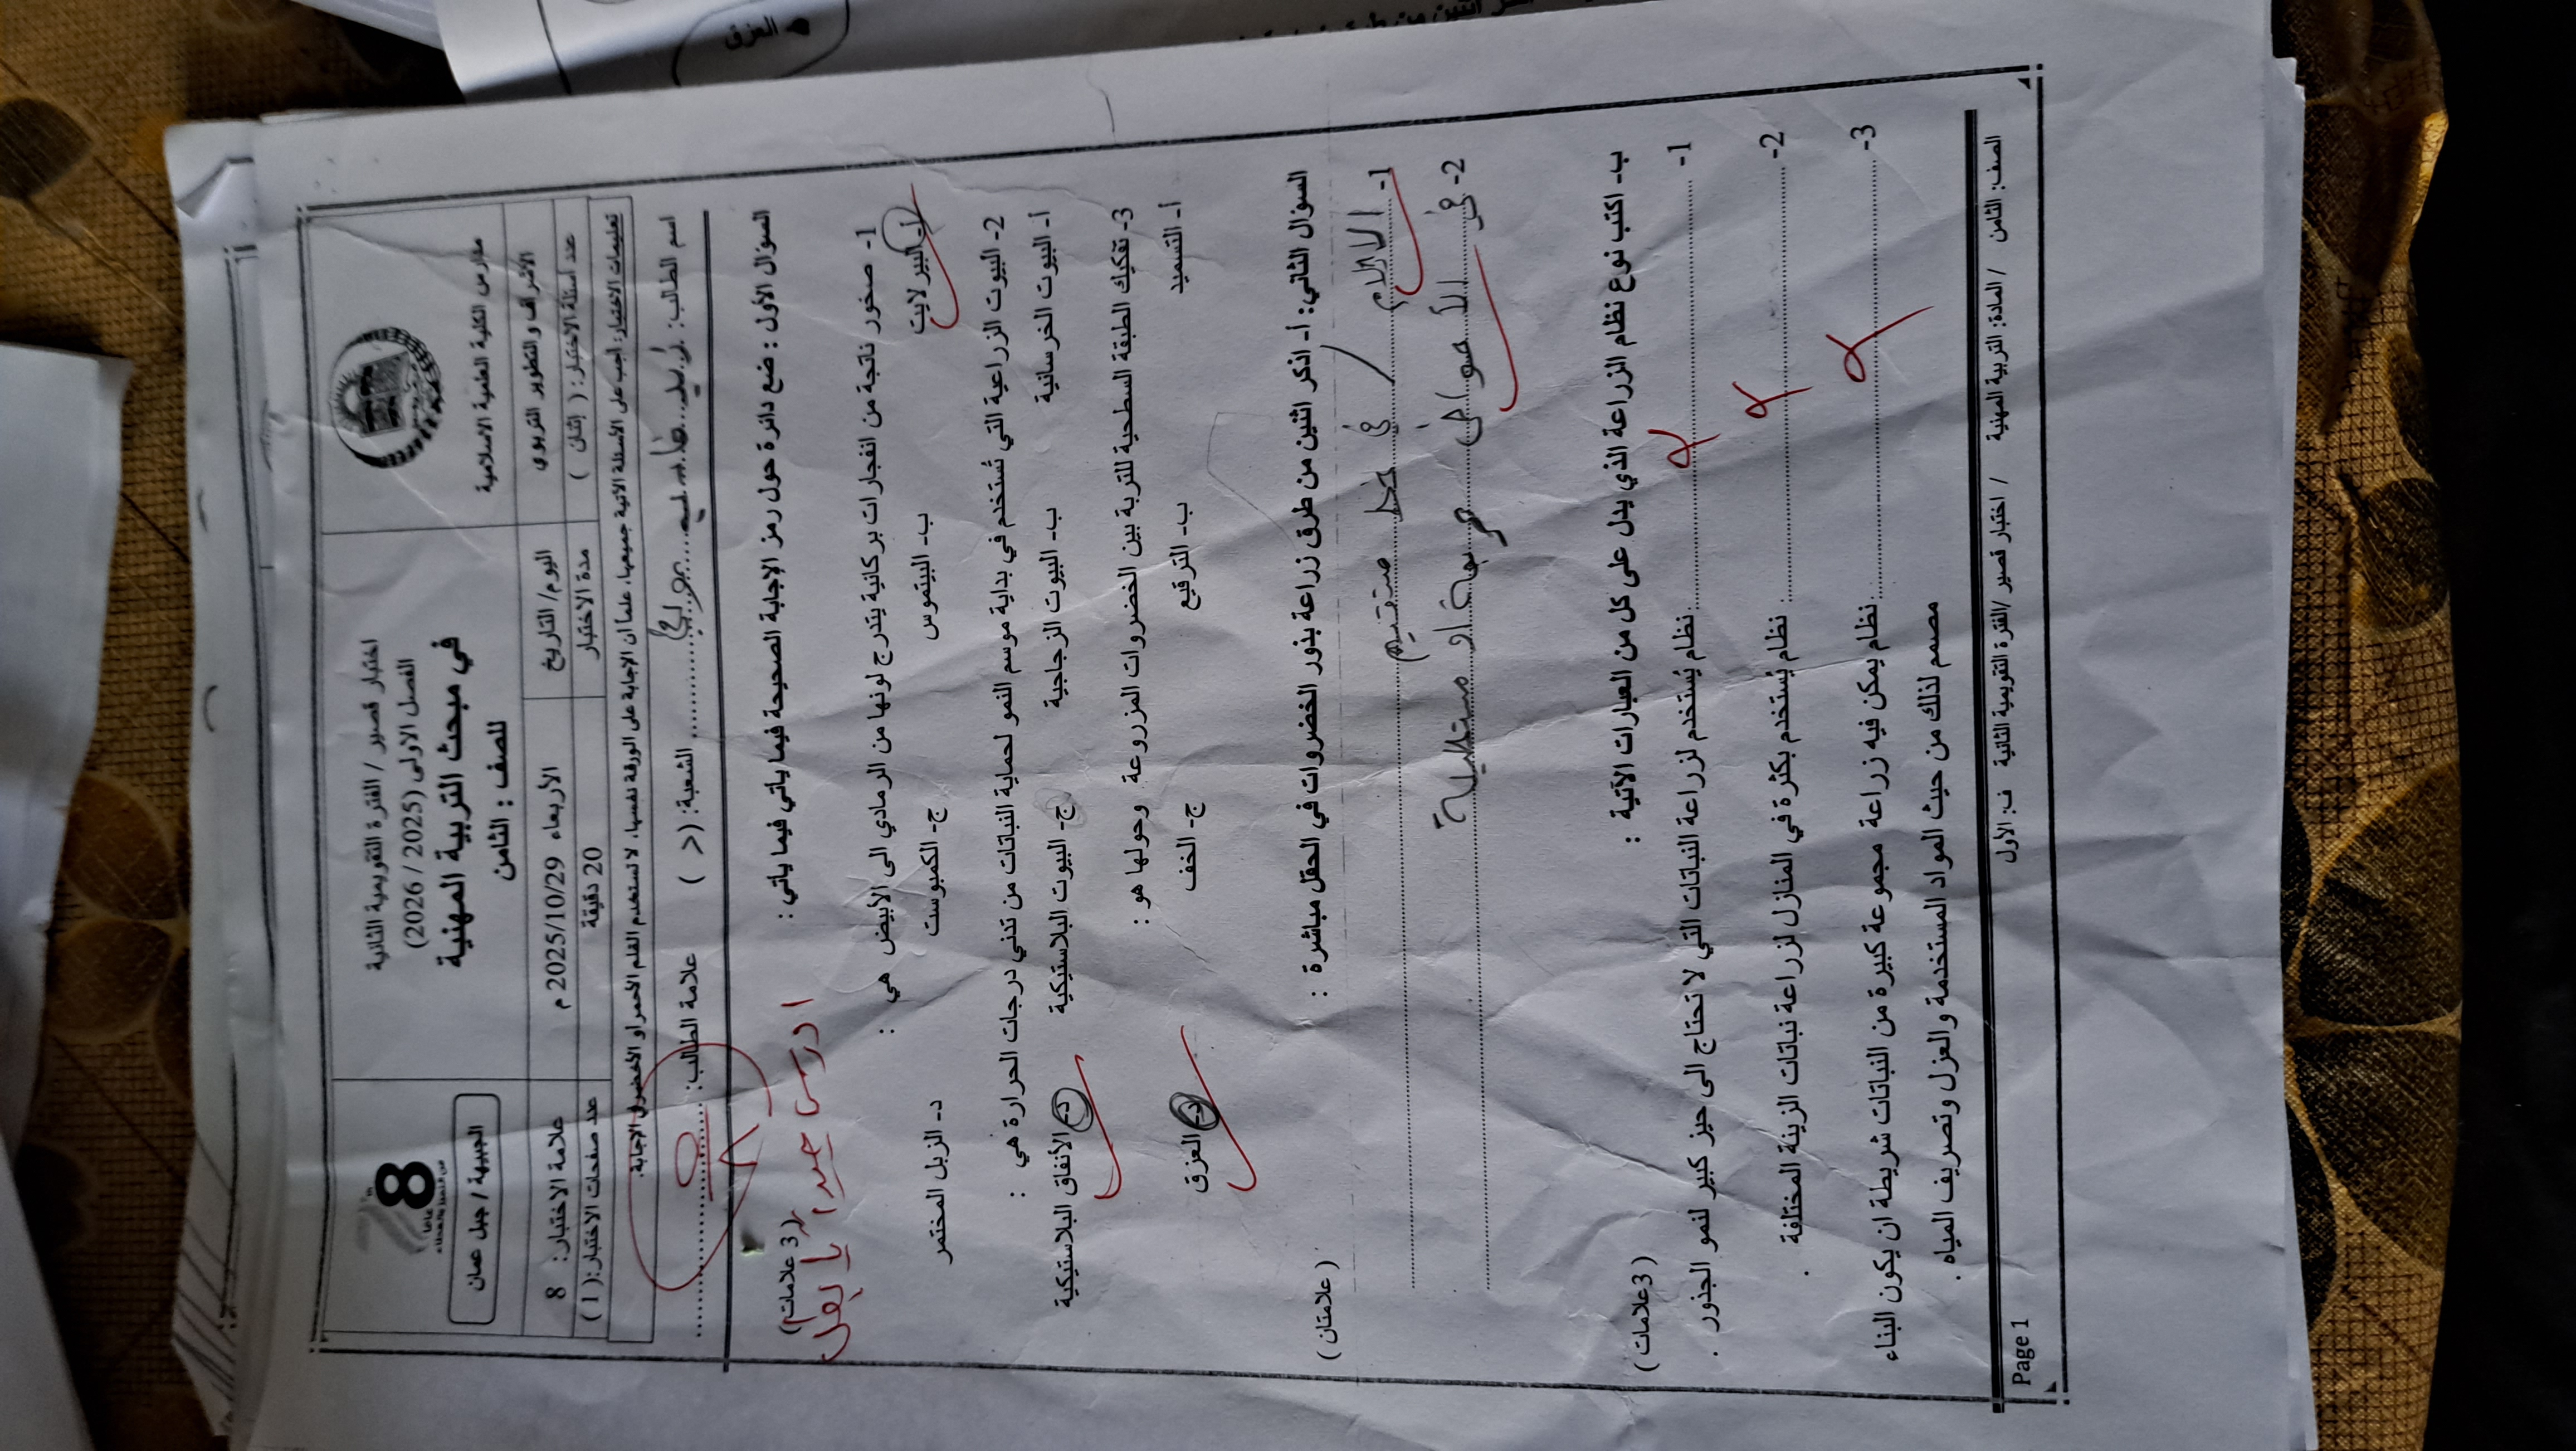 العزق
مدارس الكلية العلمية الاسلامية
اختبار قصير / الفترة التقويمية الثانية
الفصل الأولى (2025 / 2026)
في مبحث التربية المهنية
للصف : الثامن
8
عاما
الجبيهة / جبل عمان
الاشراف والتطوير التربوي
اليوم/ التاريخ
الأربعاء 2025/10/29 م
علامة الاختبار: 8
عدد أسئلة الاختبار: ( إثنان )
مدة الاختبار
20 دقيقة
عدد صفحات الاختبار: ( 1 )
تعليمات الاختبار: أجب على الأسئلة الآتية جميعها، علما أن الإجابة على الورقة نفسها، لا تستخدم القلم الأحمر أو الأخضر في الإجابة.
اسم الطالب: الشعبة: ( د ) علامة الطالب: ٥ / ٨
السؤال الأول : ضع دائرة حول رمز الإجابة الصحيحة فيما يأتي فيما يأتي : (3 علامات)
ادرس جيدا يا بطل
1- صخور ناتجة من انفجارات بركانية يتدرج لونها من الرمادي الى الأبيض هي :
أ- البيرلايت ب- البيتموس ج- الكمبوست د- الزبل المختمر
2- البيوت الزراعية التي تُستخدم في بداية موسم النمو لحماية النباتات من تدني درجات الحرارة هي :
أ- البيوت الخرسانية ب- البيوت الزجاجية ج- البيوت البلاستيكية د- الأنفاق البلاستيكية
3- تفكيك الطبقة السطحية للتربة بين الخضروات المزروعة وحولها هو :
أ- التسميد ب- الترقيع ج- الخف د- العزق
السؤال الثاني: أ- اذكر اثنين من طرق زراعة بذور الخضروات في الحقل مباشرة : ( علامتان )
1- الاتلام / في خط مستقيم
2- في الأحواض مربعة أو مستطيلة
ب- اكتب نوع نظام الزراعة الذي يدل على كل من العبارات الآتية : (3علامات )
1- : نظام يُستخدم لزراعة النباتات التي لا تحتاج الى حيز كبير لنمو الجذور .
2- : نظام يُستخدم بكثرة في المنازل لزراعة نباتات الزينة المختلفة .
3- : نظام يمكن فيه زراعة مجموعة كبيرة من النباتات شريطة ان يكون البناء
مصمم لذلك من حيث المواد المستخدمة والعزل وتصريف المياه .
الصف: الثامن / المادة: التربية المهنية / اختبار قصير /الفترة التقويمية الثانية ف: الأول
Page 1